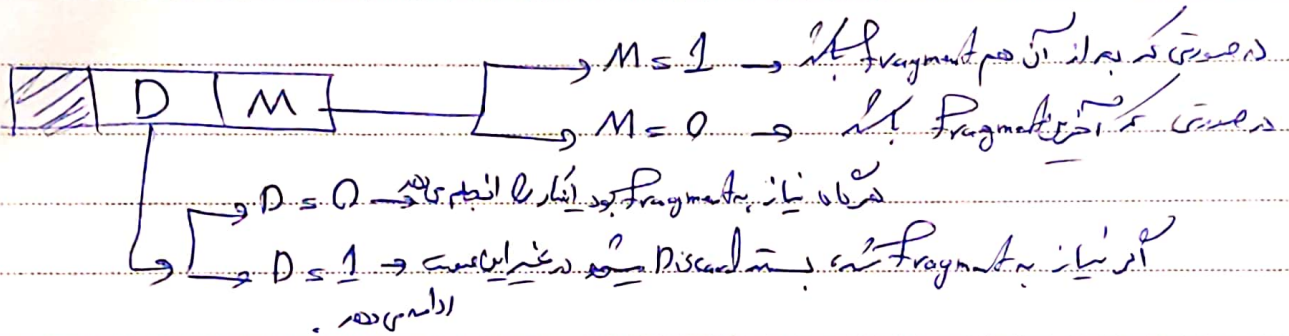 M = 1 → در صورتی که بعد از آن هم fragment باشد
D M
M = 0 → در صورتی که آخرین fragment باشد
D = 0 → هرگاه نیاز به fragment بود اینکار را انجام می‌دهد
D = 1 → اگر نیاز به fragment شد، بسته Discard میشود در غیر این صورت
ادامه می‌دهد.